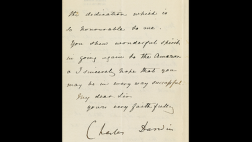 the dedication, which is
so honourable to me.
You shew wonderful spirit
in going again to the Amazon
& I sincerely hope that you
may be in every way successful
My dear Sir
yours very faithfully
Charles Darwin